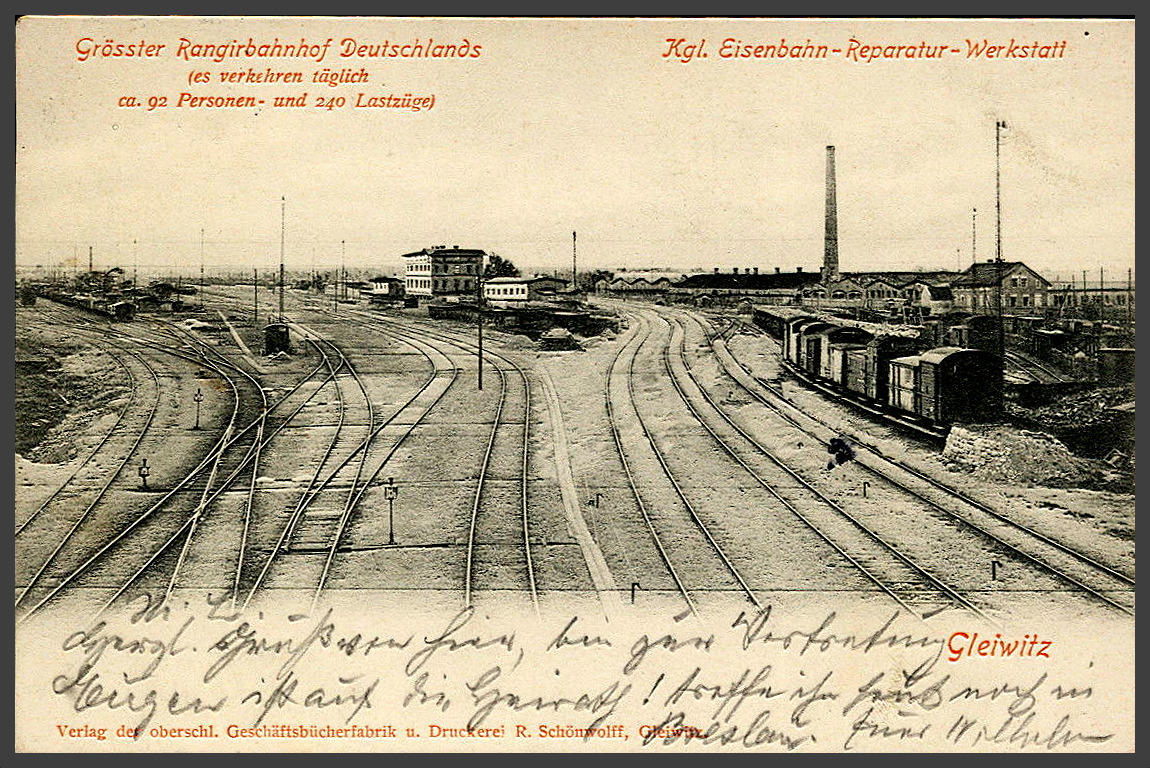 Grösster Rangirbahnhof Deutschlands
(es verkehren täglich
ca. 92 Personen- und 240 Lastzüge)
Kgl. Eisenbahn-Reparatur-Werkstatt
Herzl. Gruß von hier, bin zur Vertretung
Gleiwitz
Eugen ist auf die Heirath! treffe ihn heut noch in
Breslau. Euer Wilhelm
Verlag der oberschl. Geschäftsbücherfabrik u. Druckerei R. Schönwolff, Gleiwitz.